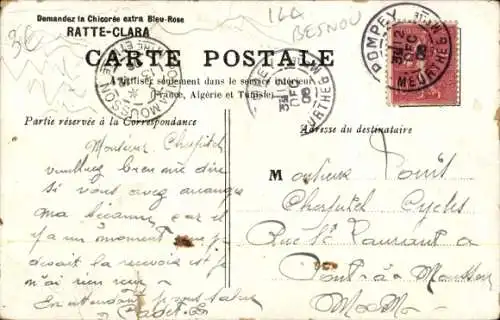 Demandez la Chicorée extra Bleu-Rose
RATTE-CLARA
3€
164
BESNOU
CARTE POSTALE
A utiliser seulement dans le service intérieur
(France, Algérie et Tunisie)
POMPEY
12
DEC
08
MEURTHE
Partie réservée à la Correspondance
Adresse du destinataire
Monsieur Chapitel
veuillez bien me dire
si vous avez arranger
ma car il
y a un moment que je
devait la recevoir et je
n'ai rien reçu
En attendant vous salue
M onsieur
Chapitel Cycles
Rue St Laurent a
Pont-à-Mousson
M&M